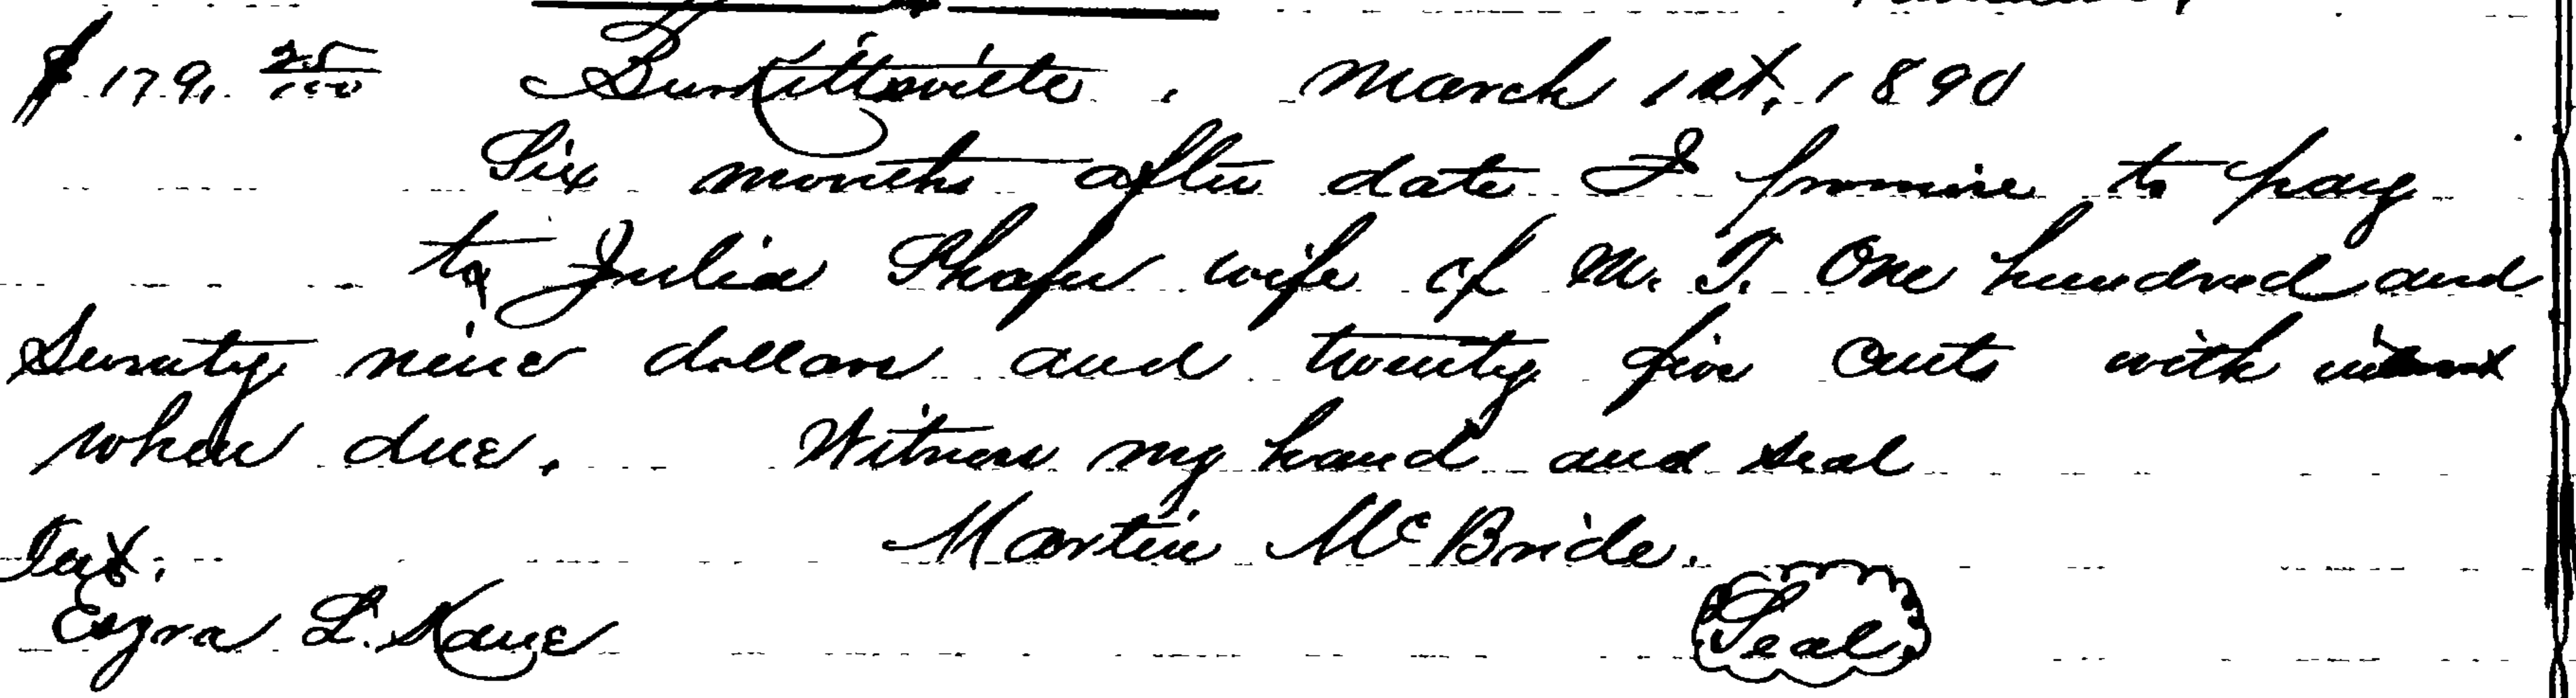 $ 179. 25/100 Burkittsville. March 1st, 1890
Six months after date I promise to pay
to Julia Shafer wife of M. T. One hundred and
Seventy nine dollars and twenty five cents with interest
when due. Witness my hand and seal
Martin McBride.
Test.
Seal
Ezra L.